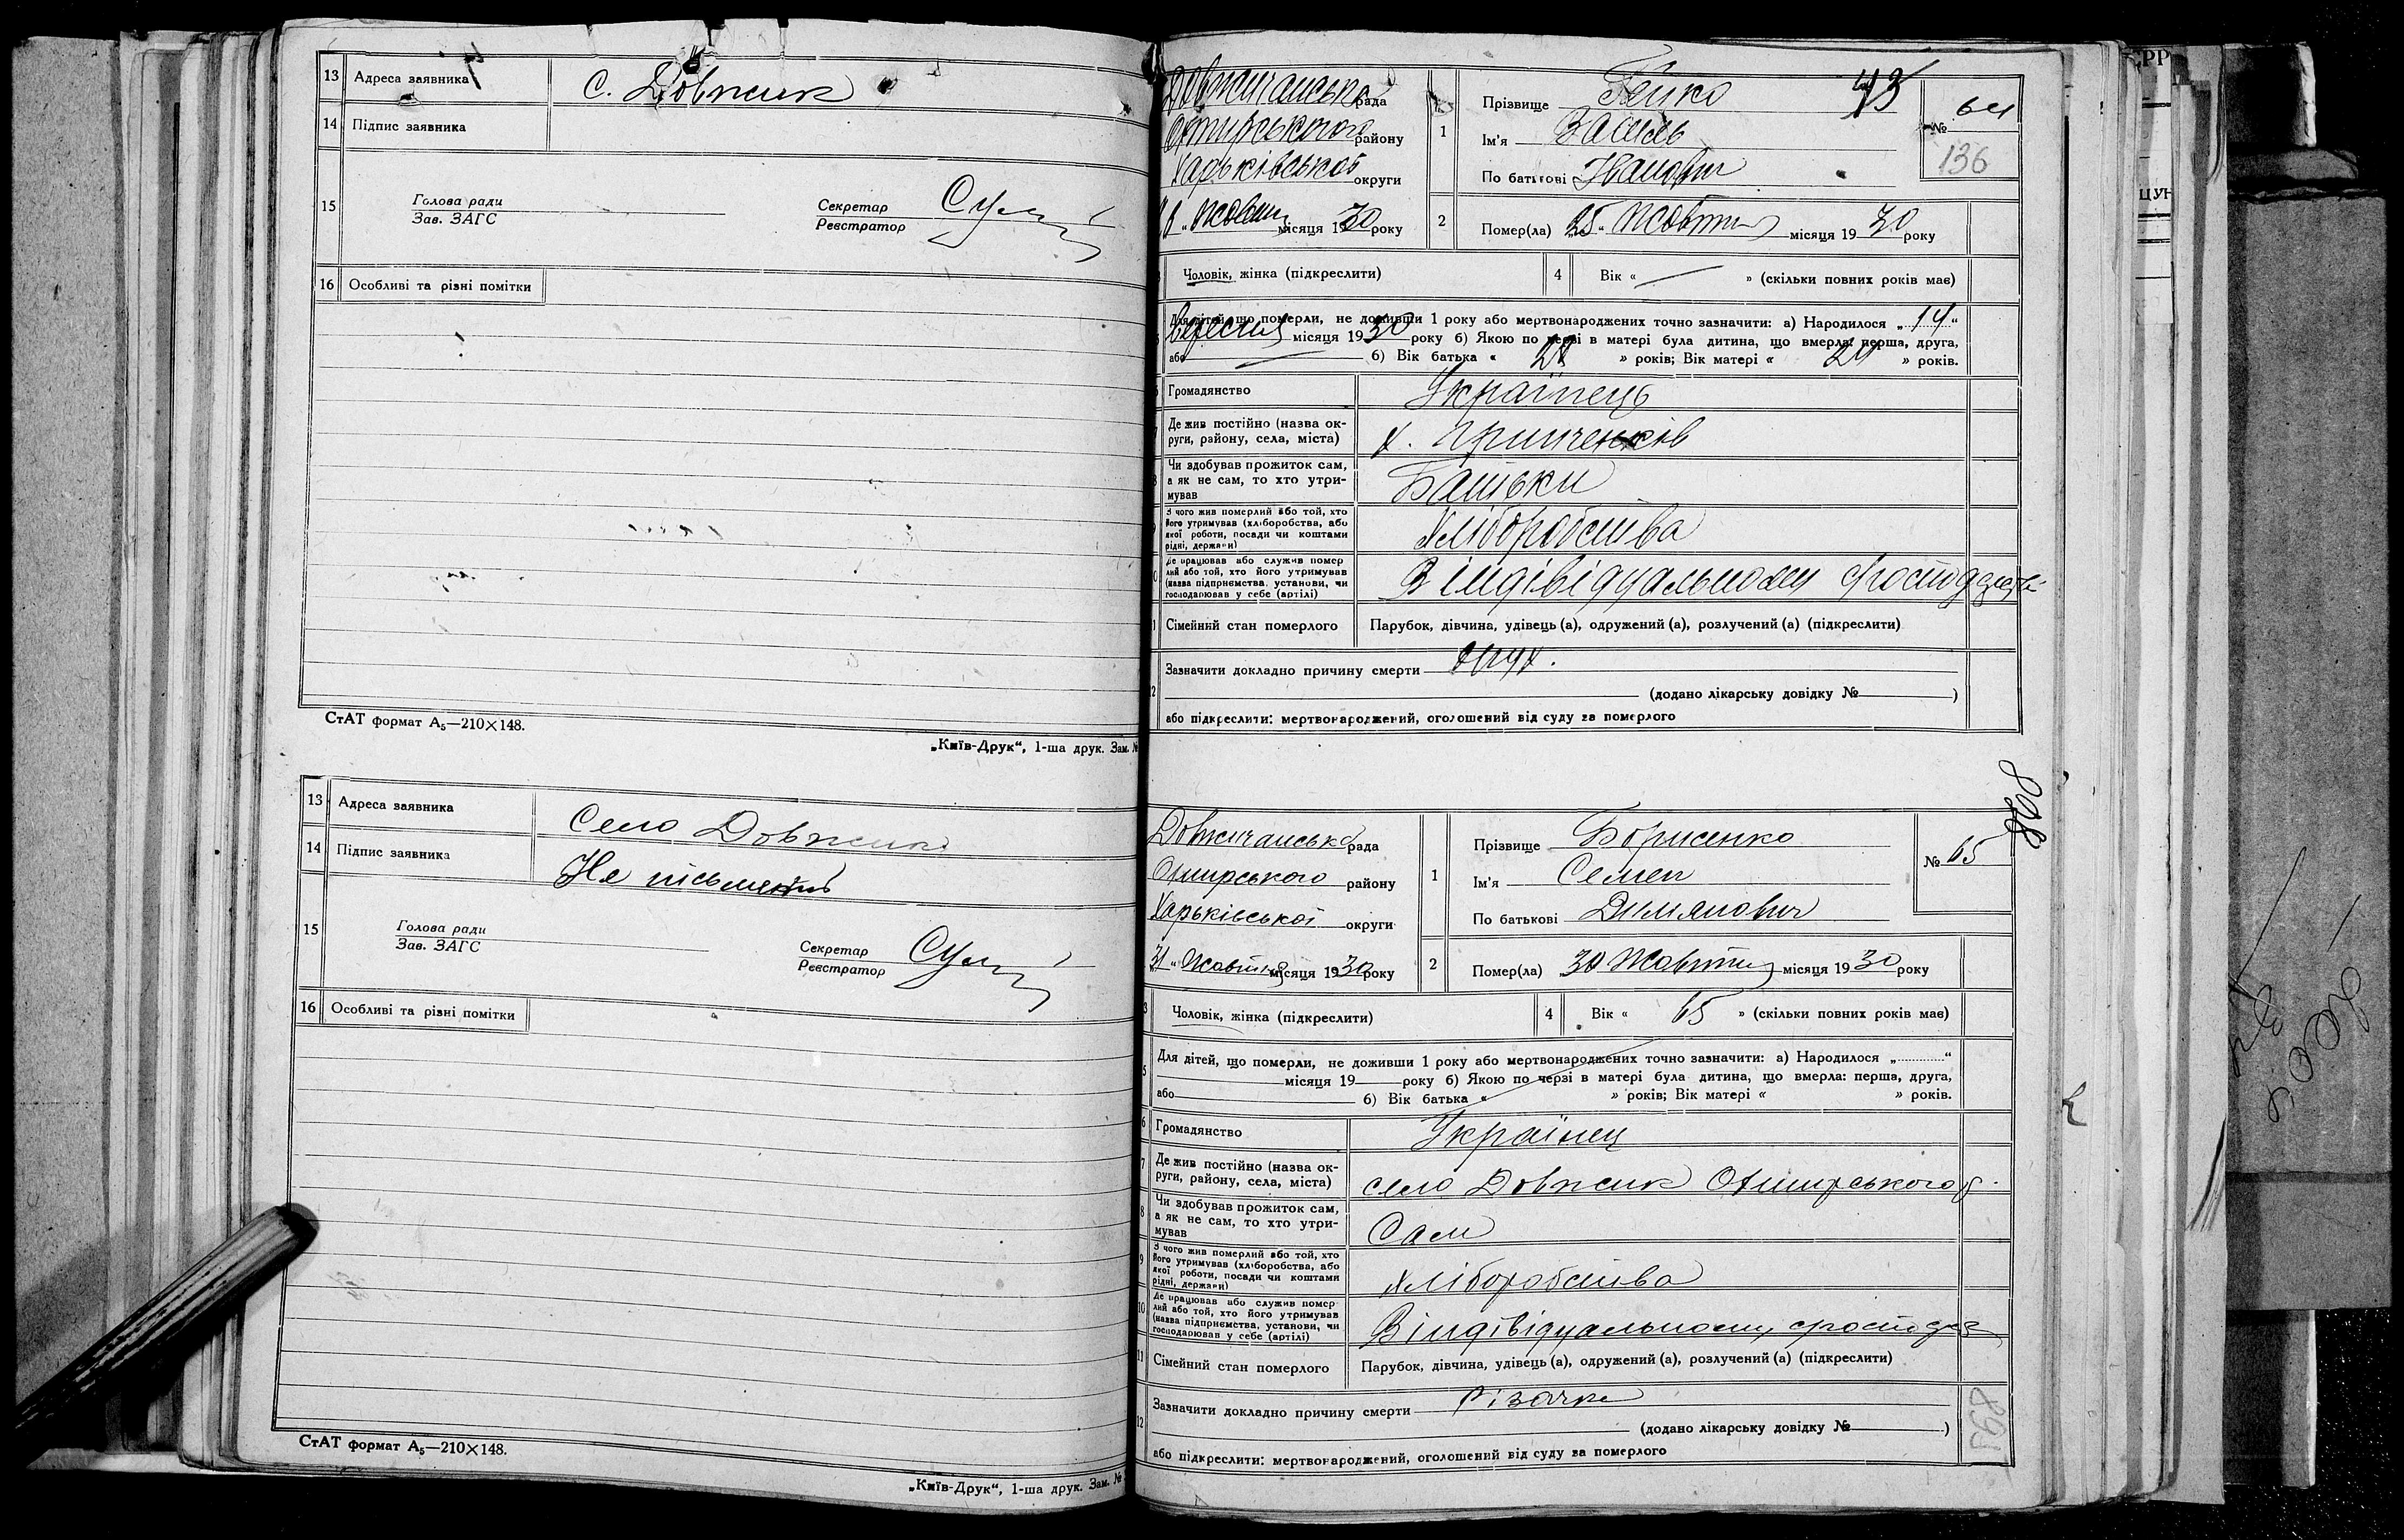 13 Адреса заявника С. Довжик
14 Підпис заявника
15 Голова ради
Зав. ЗАГС
Секретар
Реєстратор
16 Особливі та різні помітки
СтАТ формат А₅—210×148.
„Київ-Друк“, 1-ша друк. Зам. №
13 Адреса заявника Село Довжик
14 Підпис заявника Не письменний
15 Голова ради
Зав. ЗАГС
Секретар
Реєстратор
16 Особливі та різні помітки
СтАТ формат А₅—210×148.
„Київ-Друк“, 1-ша друк. Зам. №
Довжичанська рада
району
Харьківської округи
Жовтня місяця 1930 року
1 Прізвище 43
Ім'я Василь
По батькові Іванович
№ 64
136
2 Помер(ла) „25“ Жовтня місяця 1930 року
Чоловік, жінка (підкреслити) 4 Вік « — » (скільки повних років має)
Для дітей, що померли, не доживши 1 року або мертвонароджених точно зазначити: а) Народилося „14“
вересня місяця 1930 року б) Якою по черзі в матері була дитина, що вмерла: перша, друга,
або б) Вік батька « » років; Вік матері « 24 » років.
Громадянство Українець
Де жив постійно (назва округи, району, села, міста) х. Гринченків
Чи здобував прожиток сам, а як не сам, то хто утримував Батьки
З чого жив померлий або той, хто його утримував (хліборобства, або якої роботи, посади чи коштами рідні, держави) Хліборобства
Де працював або служив померлий або той, хто його утримував (назва підприємства, установи, чи господарював у себе (артілі) В індівідуальному господарстві
Сімейний стан померлого Парубок, дівчина, удівець (а), одружений (а), розлучений (а) (підкреслити)
Зазначити докладно причину смерти
(додано лікарську довідку № )
або підкреслити: мертвонароджений, оголошений від суду за померлого
Довжичанська рада
Охтирського району
Харьківської округи
31 „ Жовтня місяця 1930 року
1 Прізвище Борисенко
Ім'я Семен
По батькові
№ 65
2 Помер(ла) 30 Жовтня місяця 1930 року
3 Чоловік, жінка (підкреслити) 4 Вік « 65 » (скільки повних років має)
5 Для дітей, що померли, не доживши 1 року або мертвонароджених точно зазначити: а) Народилося „ “
місяця 19 року б) Якою по черзі в матері була дитина, що вмерла: перша, друга,
або б) Вік батька « » років; Вік матері « » років.
6 Громадянство Українец
7 Де жив постійно (назва округи, району, села, міста) село Довжик Охтирського р.
8 Чи здобував прожиток сам, а як не сам, то хто утримував Сам
9 З чого жив померлий або той, хто його утримував (хліборобства, або якої роботи, посади чи коштами рідні, держави) хліборобства
10 Де працював або служив померлий або той, хто його утримував (назва підприємства, установи, чи господарював у себе (артілі) В індівідуальному господар
11 Сімейний стан померлого Парубок, дівчина, удівець (а), одружений (а), розлучений (а) (підкреслити)
12 Зазначити докладно причину смерти Різачка
(додано лікарську довідку № )
або підкреслити: мертвонароджений, оголошений від суду за померлого